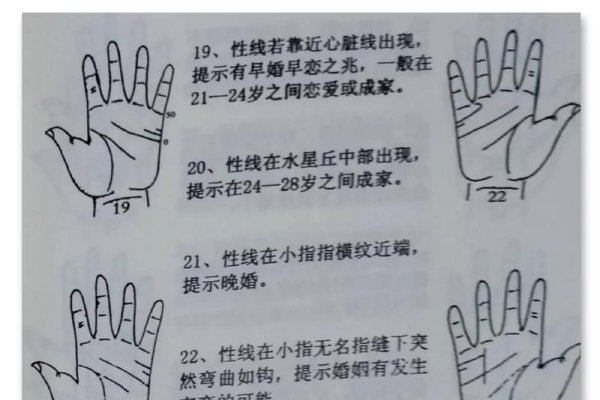 19、性线若靠近心脏线出现，
提示有早婚早恋之兆，一般在
21—24岁之间恋爱或成家。
50
0
19
20、性线在水星丘中部出现，
提示在24—28岁之间成家。
22
21、性线在小指指横纹近端，
提示晚婚。
22、性线在小指无名指缝下突
然弯曲如钩，提示婚姻有发生